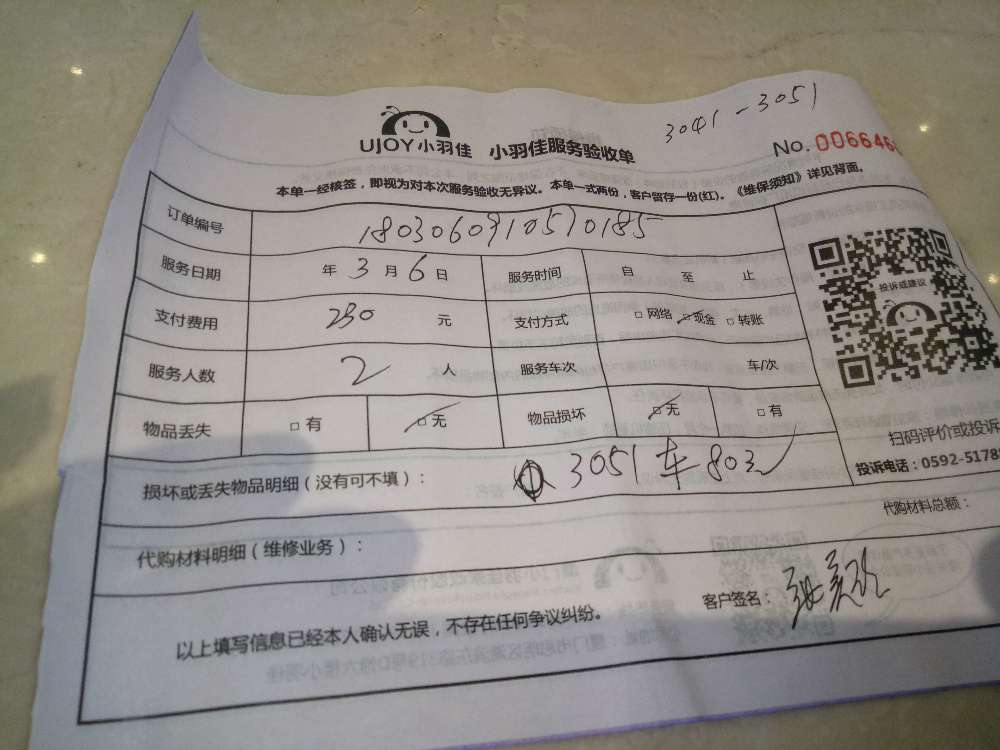 3041-3051
UJOY小羽佳 小羽佳服务验收单 No.006646
本单一经核签，即视为对本次服务验收无异议。本单一式两份，客户留存一份(红)。《维保须知》详见背面。
订单编号 180306091050185
服务日期 年 3 月 6 日 服务时间 自 至 止
投诉或建议
支付费用 230 元 支付方式 □网络 □现金 □转账
服务人数 2 人 服务车次 车/次
物品丢失 □有 □无 物品损坏 □无 □有
扫码评价或投诉
投诉电话：0592-5178
损坏或丢失物品明细（没有可不填）： 3051 车 803
代购材料总额：
代购材料明细（维修业务）：
客户签名：
以上填写信息已经本人确认无误，不存在任何争议纠纷。